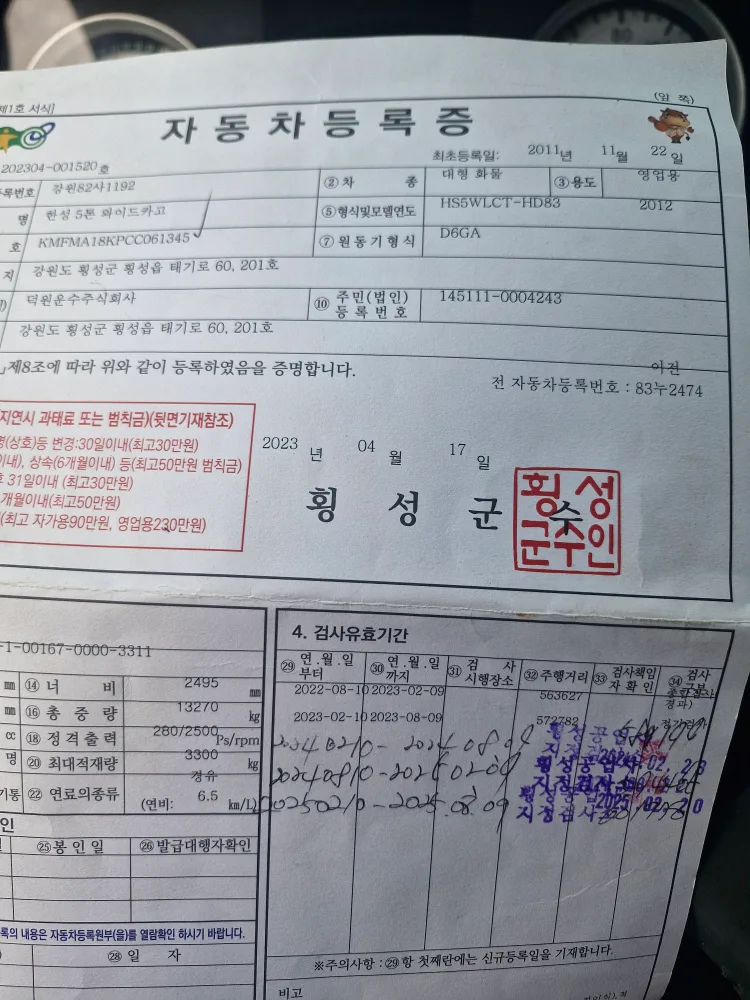 제1호 서식]
(앞 쪽)
자 동 차 등 록 증
202304-001520호
최초등록일: 2011년 11월 22일
등록번호 강원82사1192 ②차 종 대형 화물 ③용도 영업용
명 한성 5톤 와이드카고 ⑤형식및모델연도 HS5WLCT-HD83 2012
호 KMFMA18KPCC061345 ⑦원동기형식 D6GA
지 강원도 횡성군 횡성읍 태기로 60, 201호
덕원운수주식회사 ⑩ 주민(법인)등 록 번 호 145111-0004243
강원도 횡성군 횡성읍 태기로 60, 201호
」제8조에 따라 위와 같이 등록하였음을 증명합니다.
이전
전 자동차등록번호 : 83누2474
지연시 과태료 또는 범칙금)(뒷면기재참조)
명(상호)등 변경:30일이내(최고30만원)
이내), 상속(6개월이내) 등(최고50만원 범칙금)
후 31일이내 (최고30만원)
개월이내(최고50만원)
(최고 자가용90만원, 영업용230만원)
2023 년 04 월 17 일
횡 성 군 수
횡성
군수인
-1-00167-0000-3311
mm ⑭ 너 비 2495 mm
mm ⑯ 총 중 량 13270 kg
cc ⑱ 정격출력 280/2500 Ps/rpm
명 ⑳ 최대적재량 3300 kg
기통 ㉒ 연료의종류 경유 (연비: 6.5 km/L)
인
㉕봉 인 일 ㉖발급대행자확인
록의 내용은 자동차등록원부(을)를 열람확인 하시기 바랍니다.
㉘ 일 자
4. 검사유효기간
㉙ 연.월.일 부터 ㉚ 연.월.일 까지 ㉛ 검 사 시행장소 ㉜주행거리 ㉝ 검사책임자확인 ㉞ 검사구분
2022-08-10 2023-02-09 563627 종합검사(경과)
2023-02-10 2023-08-09 572782
20240210-20240809
20240810-20250209
20250210-2025.08.09
※주의사항 : ㉙항 첫째란에는 신규등록일을 기재합니다.
비고